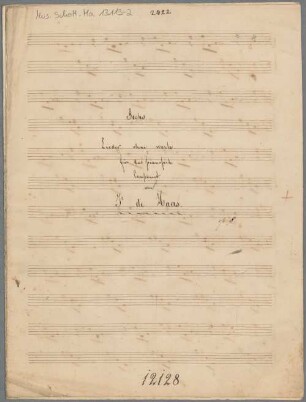 Mus. Schott. Ha. 13113-2 2422
Sechs
Lieder ohne worte
für das pianoforte
componirt
von
F. de Haas.
12128